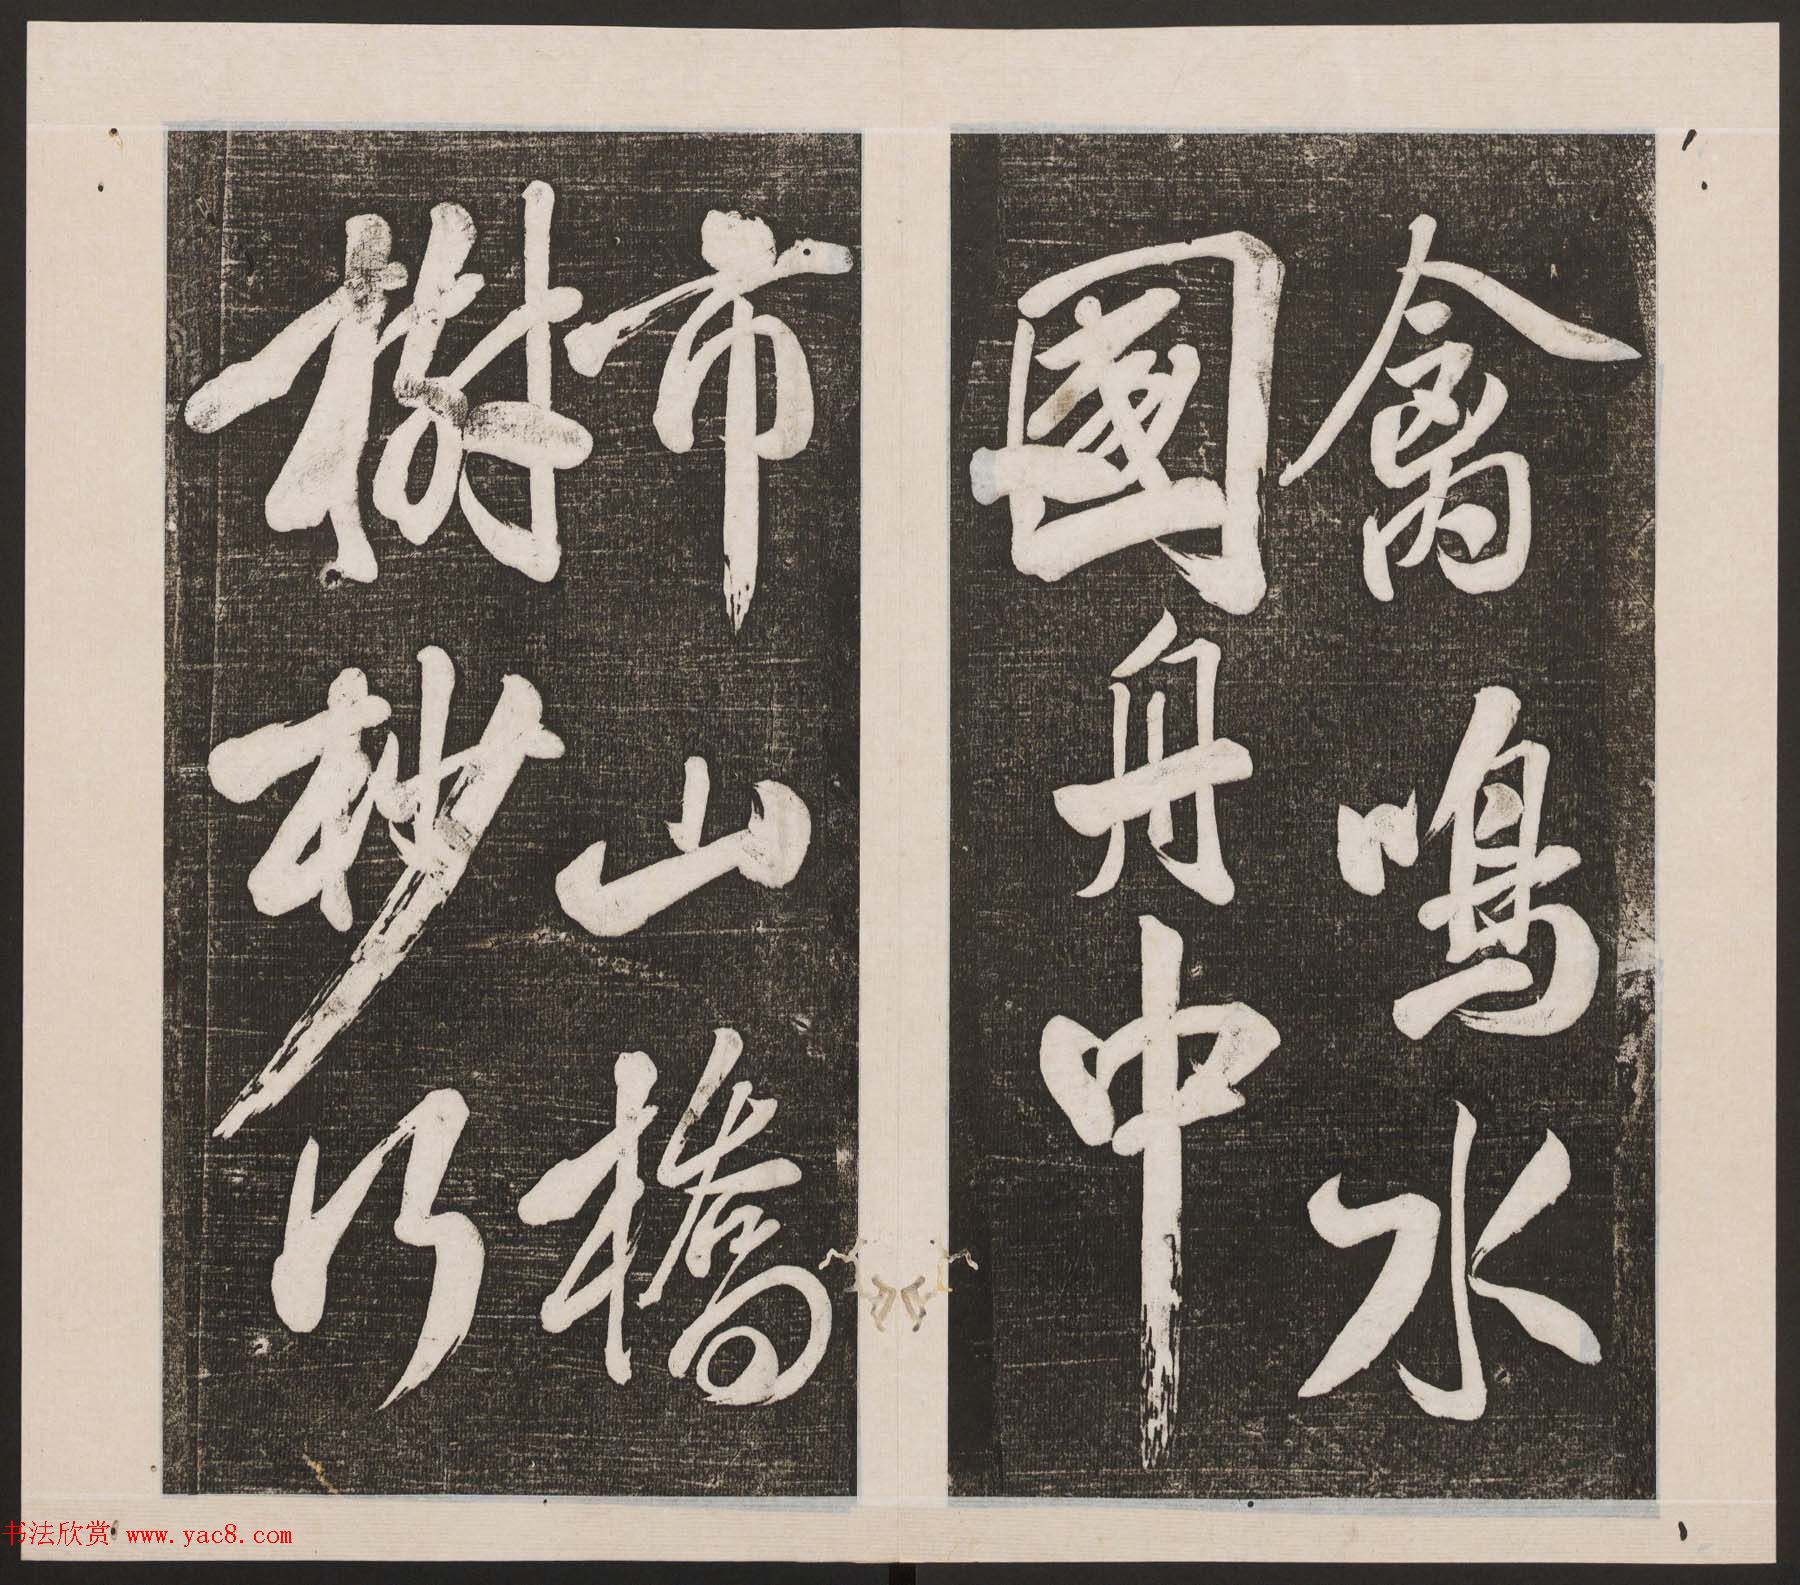 禽鳴水
國舟中
市山橋
樹杪行
书法欣赏 www.yac8.com